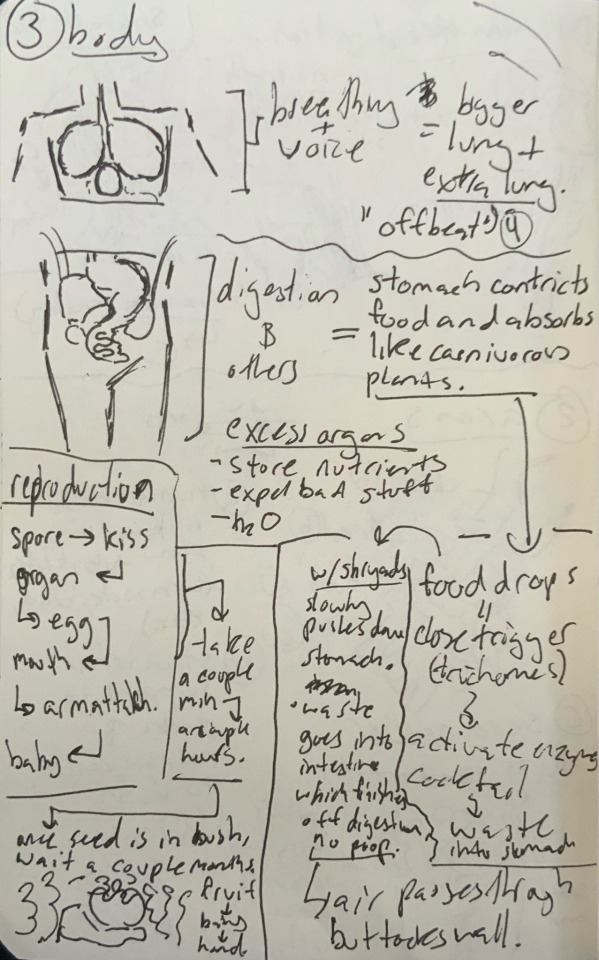 ③ body
breathing
+
voice
= bigger
lung +
extra lung.
"offbeat" ④
digestion
&
others
=
stomach contricts
food and absorbs
like carnivorous
plants.
excess organs
- store nutrients
- expel bad stuff
- h2O
reproduction
spore → kiss
organ ↵
↳ egg
mouth ←
↳ arm attatch.
baby ↵
take
a couple
min →
a couple
hours.
once seed is in bush,
wait a couple months
fruit
↓
baby
↓
hand
food drops
close trigger
(trichomes)
activate enzyme
cocktail
waste
into stomach
slowly
pushes down
stomach.
waste
goes into
intestine
which finishes
off digestion
no poop.
↳ air passes through
buttocks wall.